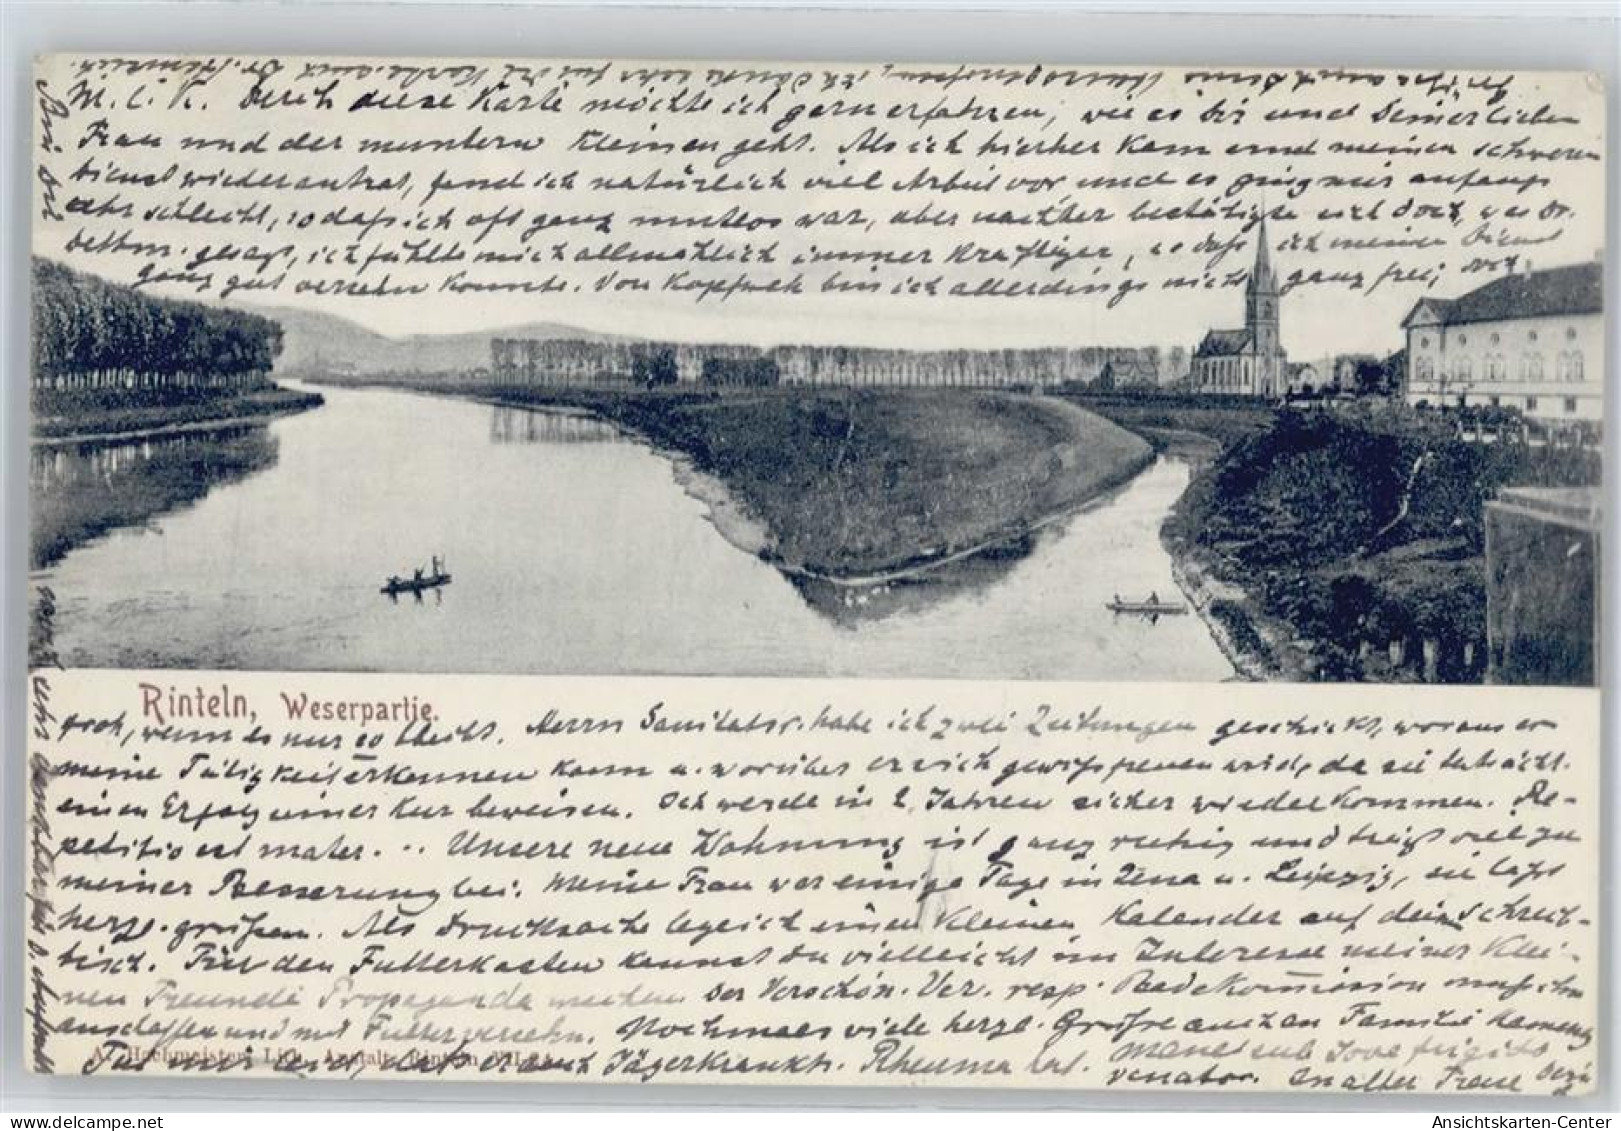 Grüße auch Deine Hausgenossen, ich danke sehr für die Karte auch Dr. Heinrich.
M. l. K. Durch diese Karte möchte ich gern erfahren, wie es dir und Deiner lieben
Frau und der muntern Kleinen geht. Als ich hierher kam und meinen schweren
Dienst wieder antrat, fand ich natürlich viel Arbeit vor und es ging mir anfangs
sehr schlecht, so daß ich oft ganz mutlos war, aber nachher bestätigte sich doch, was Dr.
gesagt, ich fühlte mich allmählich immer kräftiger, so daß ich meinen Dienst
ganz gut versehn konnte. Von Kopfweh bin ich allerdings nicht ganz frei, doch
Rinteln, Weserpartie.
froh, wenn es nur so bleibt. Herrn Sanitätsr. habe ich zwei Zeitungen geschickt, woraus er
meine Tätigkeit erkennen kann u. worüber er sich gewiß freuen wird, da sie tatsächl.
einen Erfolg einer Kur beweisen. Ich werde in 2 Jahren sicher wiederkommen. Re-
petitio est mater... Unsere neue Wohnung ist ganz ruhig und trägt viel zu
meiner Besserung bei. Meine Frau war einige Tage in Jena u. Leipzig, sie läßt
herzl. grüßen. Als Drucksache lege ich einen kleinen Kalender auf dein Schreib-
tisch. Für den Futterkasten kannst du vielleicht im Interesse meiner klei-
nen Freunde Propaganda machen. Der Verschön. Ver. resp. Badekommission muß ihn
anschaffen und mit Futter versehn. Nochmals viele herzl. Grüße auch an Familie
Tut mir leid, daß er auch Jägerkrankh. Rheuma hat. Manet sub Jove frigido
venator. An alter Treue Dein
A. Hochmeister, Lith. Anstalt, Rinteln
Bin dort